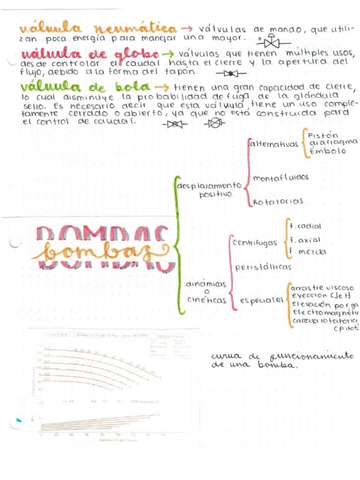 válvula neumática → válvulas de mando, que utili-
zan poca energía para manejar una mayor.
válvula de globo → válvulas que tienen múltiples usos,
desde controlar el caudal hasta el cierre y la apertura del
flujo, debido a la forma del tapón.
válvula de bola → tienen una gran capacidad de cierre,
lo cual disminuye la probabilidad de fuga de la glándula
sello. Es necesario decir que esta válvula, tiene un uso comple-
tamente cerrado o abierto, ya que no está construida para
el control de caudal.
BOMBAS
bombas
desplazamiento
positivo
alternativas
Pistón
diafragma
Émbolo
montafluidos
Rotatorias
dinámicas
o
cinéticas
centrífugas
f. radial
f. axial
f. mezcla
peristálticas
especiales
arrastre viscoso
eyección (Jet)
elevación por ga
Electromagnéti
carcasa rotatoria
curva de funcionamiento
de una bomba.